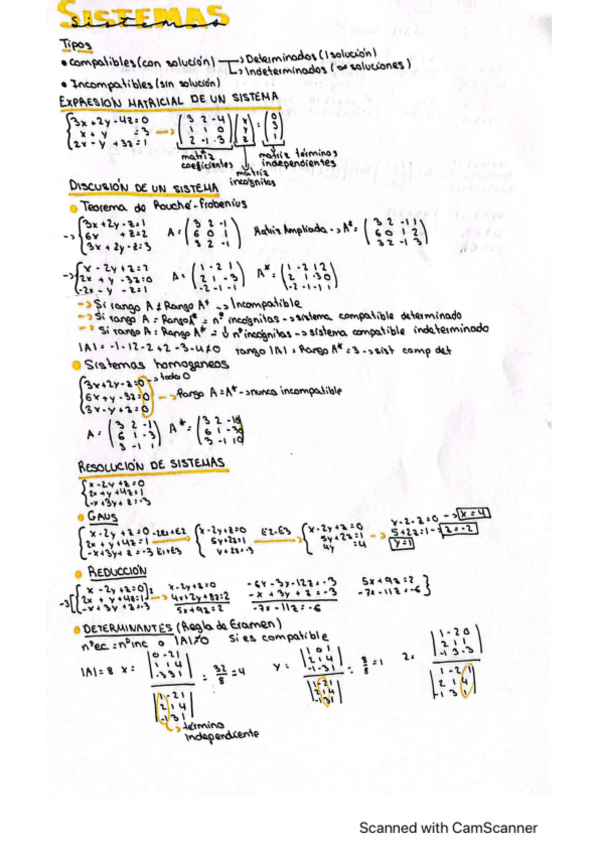 SISTEMAS
Sistemas
Tipos
• compatibles (con solución) → Determinados (1 solución)
→ Indeterminados (∞ soluciones)
• Incompatibles (sin solución)
EXPRESIÓN MATRICIAL DE UN SISTEMA
3x+2y-4z=0
x+y =3
2x-y+3z=1
matriz coeficientes
matriz incógnitas
matriz términos independientes
DISCUSIÓN DE UN SISTEMA
• Teorema de Rouché-Frobenius
3x+2y-z=1
6x +z=2
3x+2y-z=3
A=
Matriz Ampliada → A*=
2x+y-3z=0
-2x-y-z=1
A= A*=
→ Si rango A ≠ Rango A* → Incompatible
→ Si rango A = Rango A* = nº incógnitas → sistema compatible determinado
→ Si rango A = Rango A* = ↓ nº incógnitas → sistema compatible indeterminado
|A| = -1-12-2+2-3-4≠0 rango |A| = Rango A* = 3 → sist comp det
• Sistemas homogeneos
→ todo 0
3x+2y-z=0
6x+y-3z=0
3x-y+z=0
→ Rango A=A* → nunca incompatible
A= A*=
RESOLUCIÓN DE SISTEMAS
x-2y+z=0
2x+y+4z=1
-x+3y+z=-3
• GAUS
x-2y+z=0
2x+y+4z=1
-x+3y+z=-3 E1+E3
x-2y+z=0
5y+2z=1
y+2z=-3
E2-E3
x-2y+z=0
5y+2z=1
4y =4
x=4
z=-2
y=1
• REDUCCIÓN
x-2y+z=0
2x+y+4z=1
-x+3y+z=-3
x-2y+z=0
4x+2y+8z=2
5x+9z=2
-6x-3y-12z=-3
-x+3y+z=-3
-7x-11z=-6
5x+9z=2
-7x-11z=-6
• DETERMINANTES (Regla de Examen)
nºec = nºinc o |A|≠0 si es compatible
|A|=8 x= = 32/8 =4 y= = 8/8 =1 z=
→ término independiente
Scanned with CamScanner